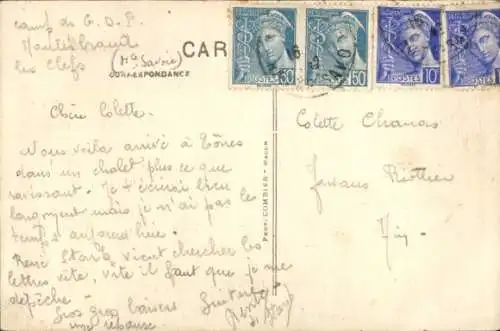 camp de G.D.F.
les Clefs
(Hte Savoie)
CAR
CORRESPONDANCE
POSTES
50
POSTES
50
POSTES
10
POSTES
Chère Colette.
Nous voilà arrivé à
dans un chalet plus ce que
ravissant. Je t'écrirai bien
longment mais je n'ai pas le
temps aujourd'hui.
René vient chercher les
lettres vite, vite il faut que je me
dépêche -
Gros gros baisers
une réponse
PHOT. COMBIER - MACON
Colette
Ain